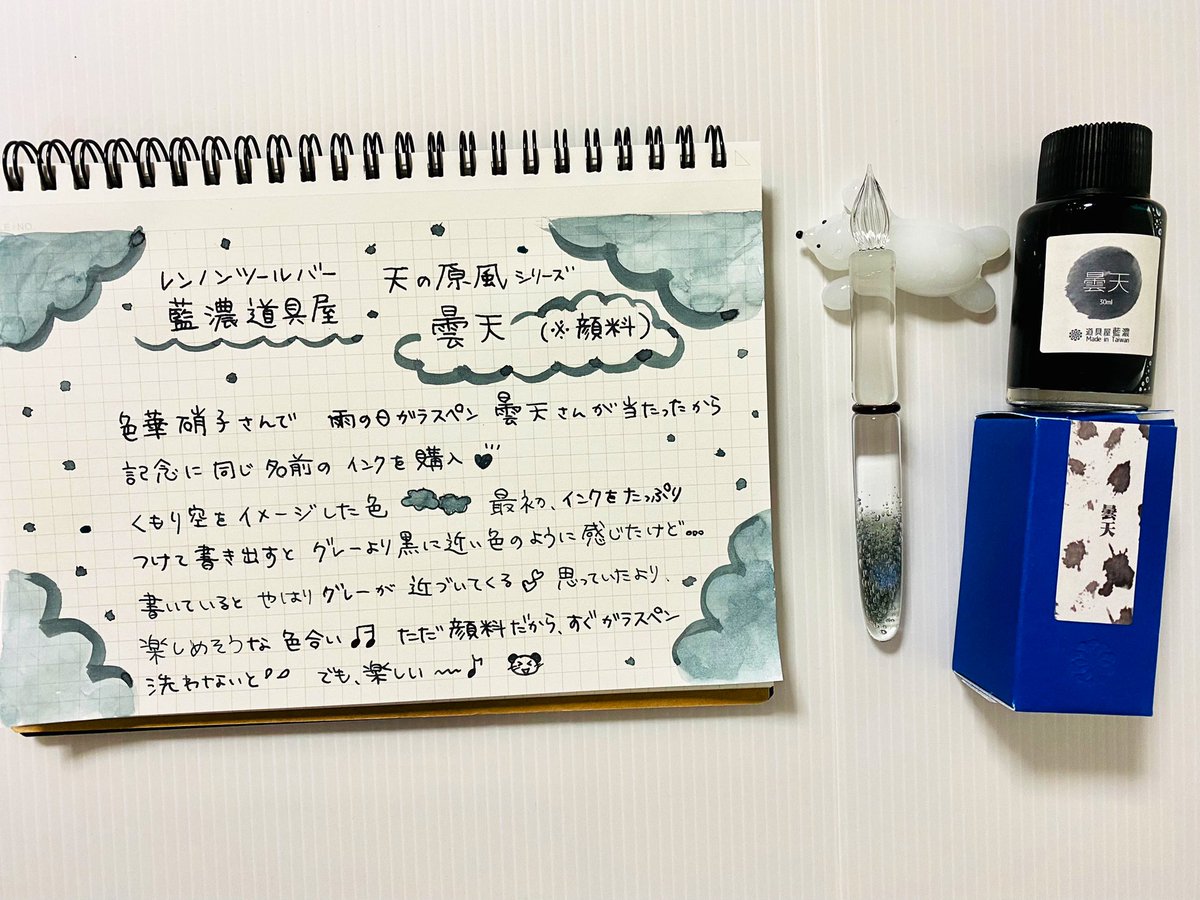 レンノンツールバー
藍濃道具屋
天の原風シリーズ
曇天 (※顔料)
色華硝子さんで 雨の日ガラスペン 曇天さんが当たったから
記念に同じ名前のインクを購入
くもり空をイメージした色 最初、インクをたっぷり
つけて書き出すと グレーより黒に近い色のように感じたけど…
書いていると やはりグレーが 近づいてくる 思っていたより、
楽しめそうな色合い♬ ただ顔料だから、すぐガラスペン
洗わないと でも、楽しい〜♪
曇天
30ml
道具屋藍濃
Made in Taiwan
曇天